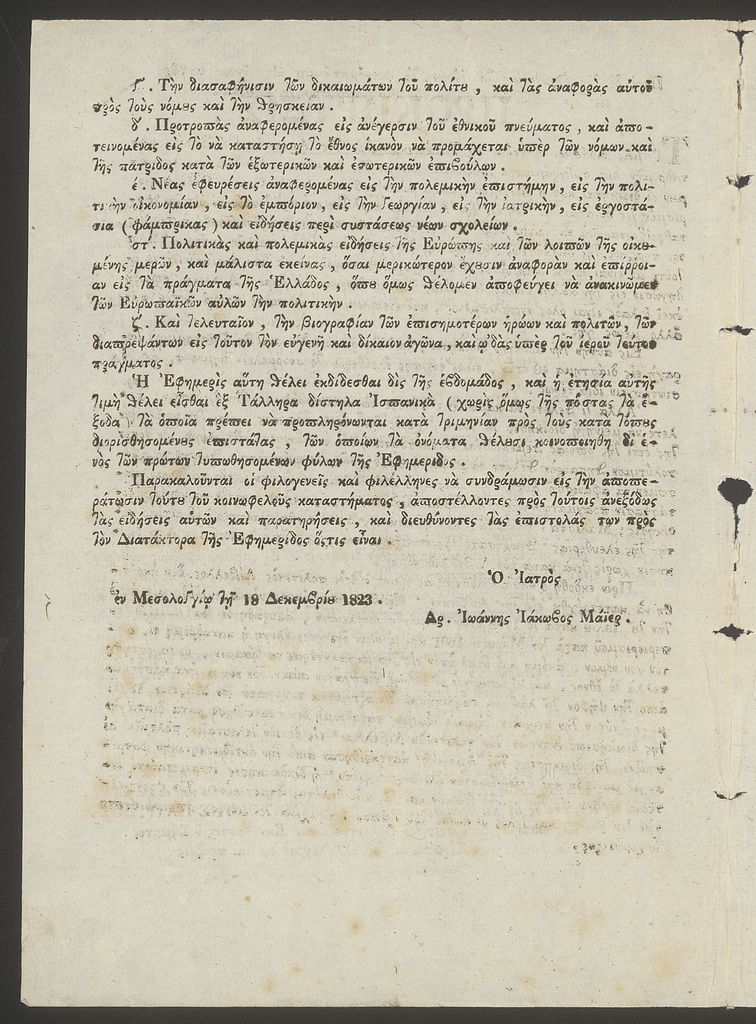 γ΄. Τὴν διασαφήνισιν τῶν δικαιωμάτων τοῦ πολίτȣ, καὶ τὰς ἀναφορὰς αὐτοῦ
πρὸς τοὺς νόμȣς καὶ τὴν θρησκείαν.
δ΄. Προτροπὰς ἀναφερομένας εἰς ἀνέγερσιν τοῦ ἐθνικοῦ πνεύματος, καὶ ἀπο-
τεινομένας εἰς τὸ νὰ καταστήσῃ τὸ ἔθνος ἱκανὸν νὰ προμάχεται ὑπὲρ τῶν νόμων καὶ
τῆς πατρίδος κατὰ τῶν ἐξωτερικῶν καὶ ἐσωτερικῶν ἐπιβούλων.
έ. Νέας ἐφευρέσεις ἀναφερομένας εἰς τὴν πολεμικὴν ἐπιστήμην, εἰς τὴν πολι-
τικὴν οἰκονομίαν, εἰς τὸ ἐμπόριον, εἰς τὴν γεωργίαν, εἰς τὴν ἰατρικὴν, εἰς ἐργοστά-
σια (φάμπρικας) καὶ εἰδήσεις περὶ συστάσεως νέων σχολείων.
στ΄. Πολιτικὰς καὶ πολεμικὰς εἰδήσεις τῆς Εὐρώπης καὶ τῶν λοιπῶν τῆς οἰκȣ-
μένης μερῶν, καὶ μάλιστα ἐκείνας, ὅσαι μερικώτερον ἔχȣσιν ἀναφορὰν καὶ ἐπιρροι-
αν εἰς τὰ πράγματα τῆς Ἑλλάδος, ὅπȣ ὅμως θέλομεν ἀποφεύγει νὰ ἀνακινῶμεν
τῶν Εὐρωπαϊκῶν αὐλῶν τὴν πολιτικὴν.
ζ΄. Καὶ τελευταῖον, τὴν βιογραφίαν τῶν ἐπισημοτέρων ἡρώων καὶ πολιτῶν, τῶν
διαπρεψάντων εἰς τοῦτον τὸν εὐγενῆ καὶ δίκαιον ἀγῶνα, καὶ ᾠδὰς ὑπὲρ τοῦ ἱεροῦ τούτου
πράγματος.
Ἡ Ἐφημερὶς αὕτη θέλει ἐκδίδεσθαι δὶς τῆς ἑβδομάδος, καὶ ἡ ἐτησία αὐτῆς
τιμὴ θέλει εἶσθαι ἓξ Τάλληρα δίστηλα Ἰσπανικὰ (χωρὶς ὅμως τῆς πόστας τὰ ἔ-
ξοδα) τὰ ὁποῖα πρέπει νὰ προπληρόνωνται κατὰ τριμηνίαν πρὸς τοὺς κατὰ τόπȣς
διορισθησομένȣς ἐπιστάτας, τῶν ὁποίων τὰ ὀνόματα θέλȣσι κοινοποιηθῆ δι᾿ ἑ-
νὸς τῶν πρώτων τυπωθησομένων φύλων τῆς Ἐφημερίδος.
Παρακαλοῦνται οἱ φιλογενεῖς καὶ φιλέλληνες νὰ συνδράμωσιν εἰς τὴν ἀποπε-
ράτωσιν τούτȣ τοῦ κοινωφελοῦς καταστήματος, ἀποστέλλοντες πρὸς τούτοις ἀνεξόδως
τὰς εἰδήσεις αὐτῶν καὶ παρατηρήσεις, καὶ διευθύνοντες τὰς ἐπιστολάς των πρὸς
τὸν Διατάκτορα τῆς Ἐφημερίδος ὅςτις εἶναι.
Ὁ Ἰατρὸς
ἐν Μεσολογγίῳ τῇ 18 Δεκεμβρίȣ 1823.
Δρ. Ἰωάννης Ἰάκωβος Μάϊερ.